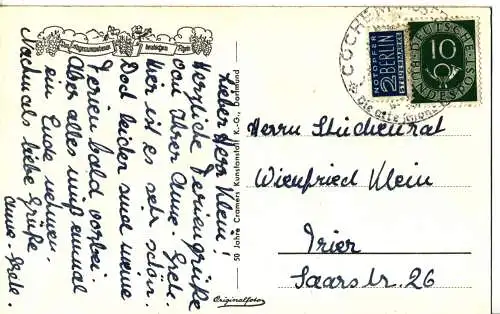 Lieber Herr Klein!
Herzliche Feriengrüße
von Ihrer Anne-Grete.
Hier ist es sehr schön.
Doch leider sind meine
Ferien bald vorbei.
Aber alles muß einmal
ein Ende nehmen.
Nochmals liebe Grüße
Anne-Grete.
50 Jahre Cramers Kunstanstalt K.-G., Dortmund
Originalfoto
COCHEM
NOTOPFER
2 BERLIN
STEUERMARKE
10
DEUTSCHE
BUNDESPOST
Herrn Studienrat
Wienfried Klein
Trier
Saarstr. 26